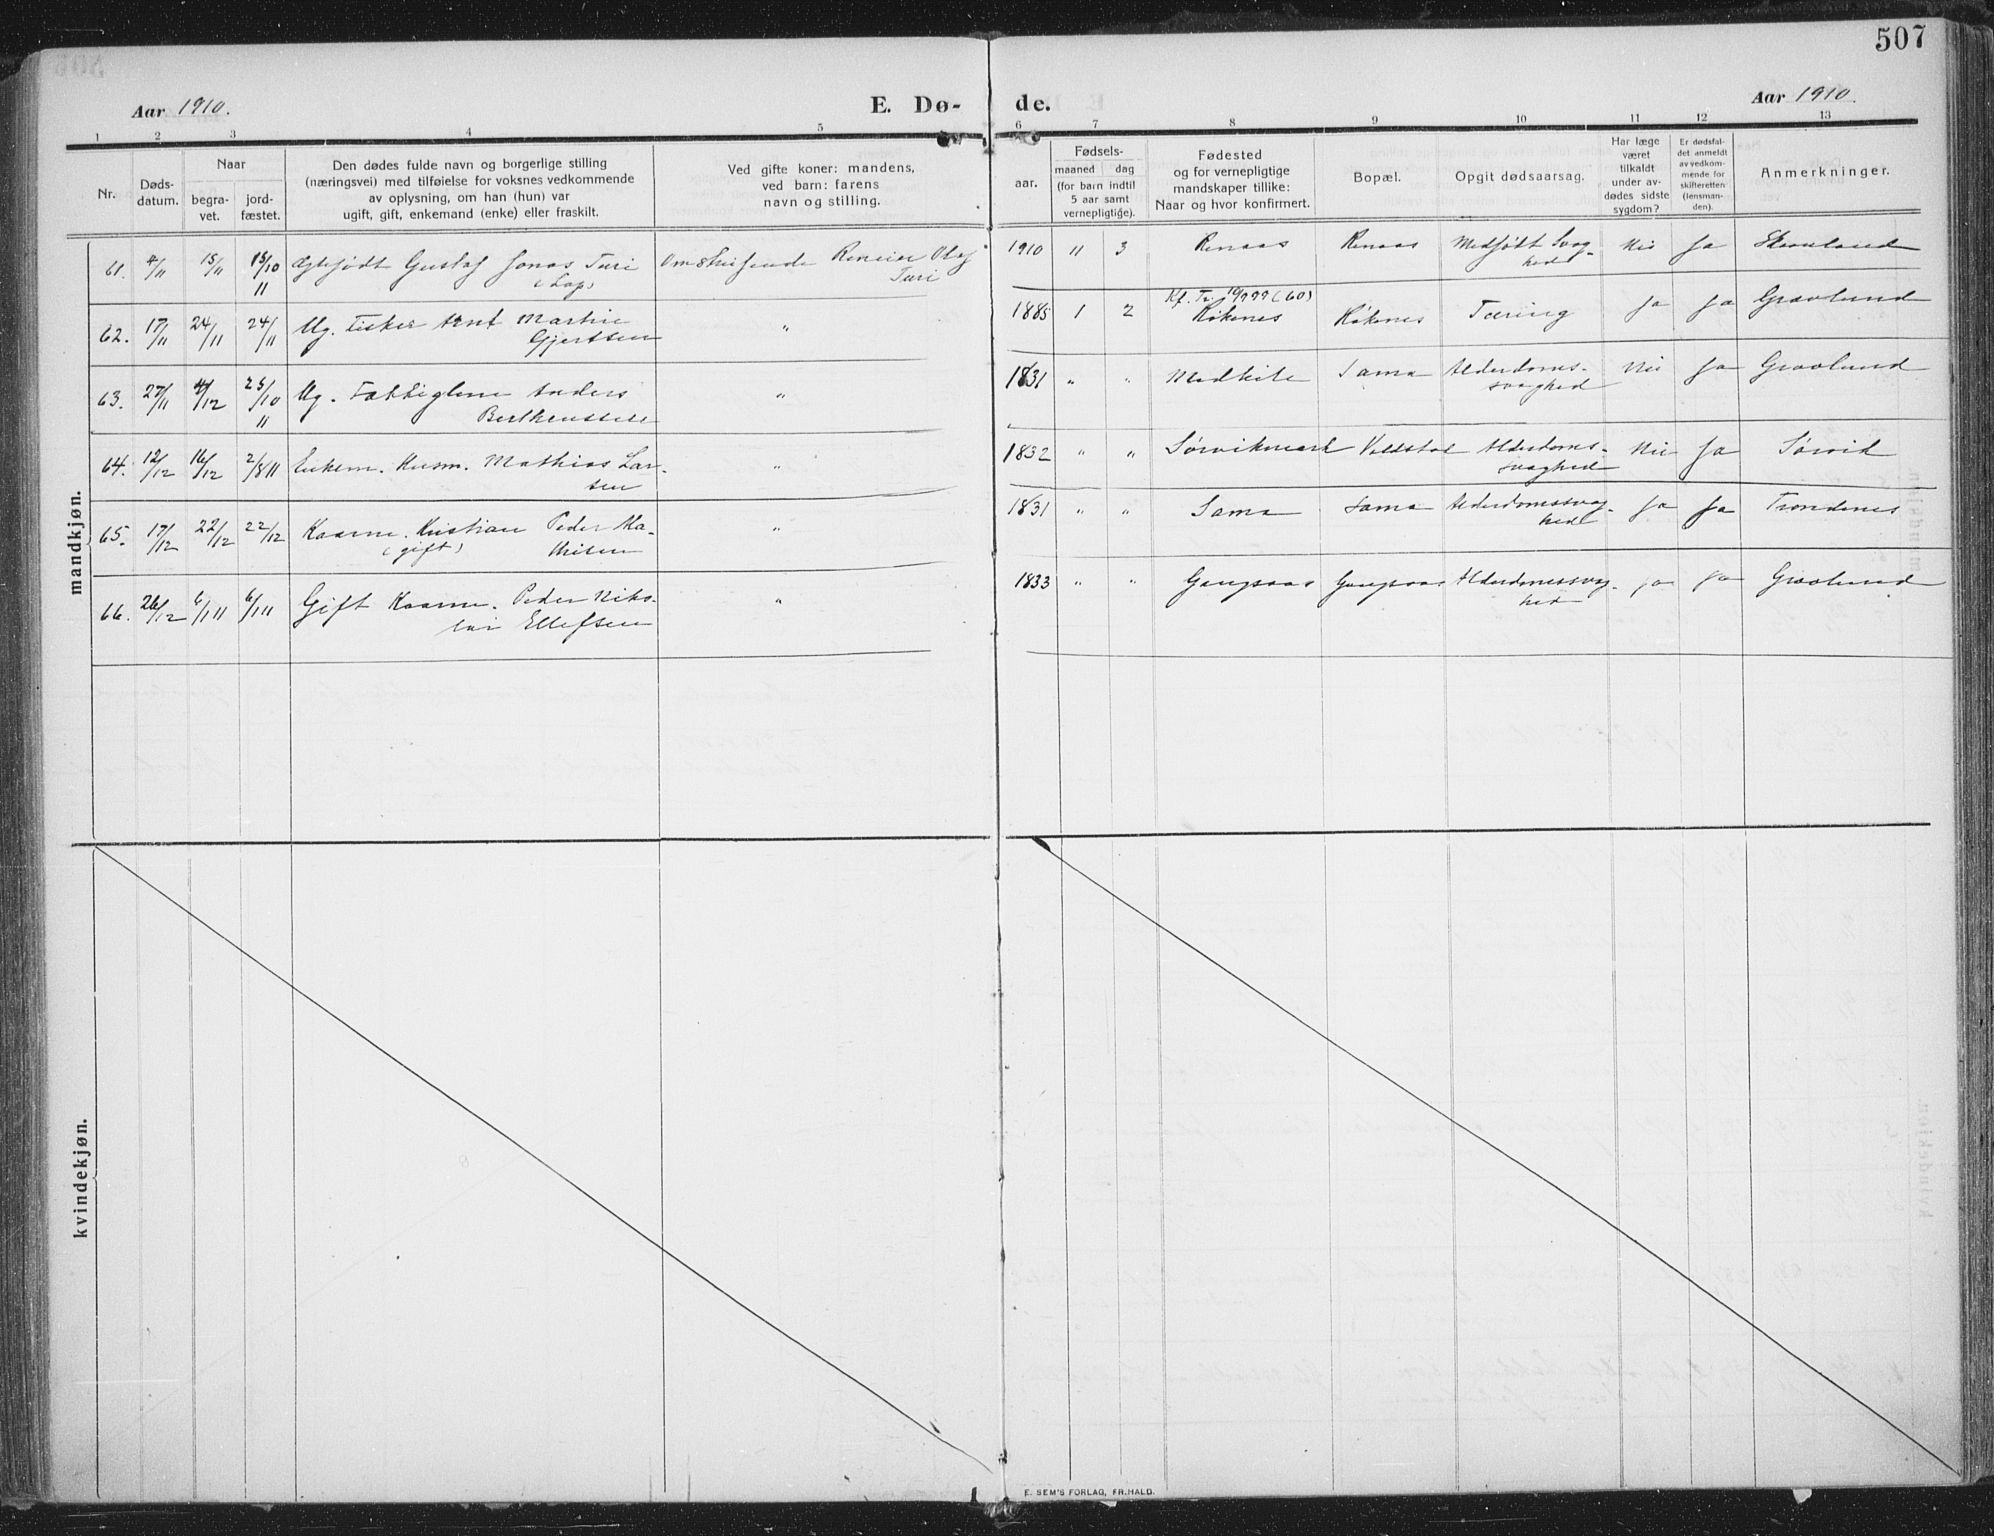 507
Aar 1910.
E. Dø-
de.
Aar 1910.
1 2 3 4 5 6 7 8 9 10 11 12 13
Nr.
Døds-
datum.
Naar
begra-
vet.
jord-
fæstet.
Den dødes fulde navn og borgerlige stilling
(næringsvei) med tilføielse for voksnes vedkommende
av oplysning, om han (hun) var
ugift, gift, enkemand (enke) eller fraskilt.
Ved gifte koner: mandens,
ved barn: farens
navn og stilling.
aar.
Fødsels-
maaned dag
(for barn indtil
5 aar samt
vernepligtige).
Fødested
og for vernepligtige
mandskaper tillike:
Naar og hvor konfirmert.
Bopæl.
Opgit dødsaarsag.
Har læge
været
tilkaldt
under av-
dødes sidste
sygdom?
Er dødsfal-
det anmeldt
av vedkom-
mende for
skifteretten
(lensman-
den).
Anmerkninger.
mandkjøn.
61. 4/11 15/11 15/10 11 Ægtefødt Gustaf Jonas Turi Omstreifende Reneier Olaf 1910 11 3 Renaas Renaas Medfødt Svag- Nei Ja Skaanland
(Lap) Turi hed
62. 17/11 24/11 24/11 Ug. Fisker Arnt Martin " 1885 1 2 Kf. Tr. Køkenes Køkenes Tæring Ja Ja Gravlund
Gjertsen
63. 27/11 4/12 25/10 11 Ug. Fattiglem Anders " 1831 " " Medkile Sama Alderdoms- Nei Ja Gravlund
Bertheussen svaghed
64. 12/12 16/12 2/8 11 Enkem. Husm. Mathias Lar- " 1832 " " Sørvikmark Voldstad Alderdoms- Nei Ja Sørvik
sen svaghed
65. 17/12 22/12 22/12 Kaarm. Kristian Peder Ma- " 1831 " " Sama Sama Alderdomssvag- Ja Ja Trondenes
(gift) thisen hed
66. 26/12 6/1 11 6/1 11 Gift Kaarm. Peder Niko- " 1833 " " Gangsaas Gangsaas Alderdomssvag- ja ja Gravlund
lai Ellefsen hed
kvindekjøn.
F. SEM'S FORLAG, FR.HALD.